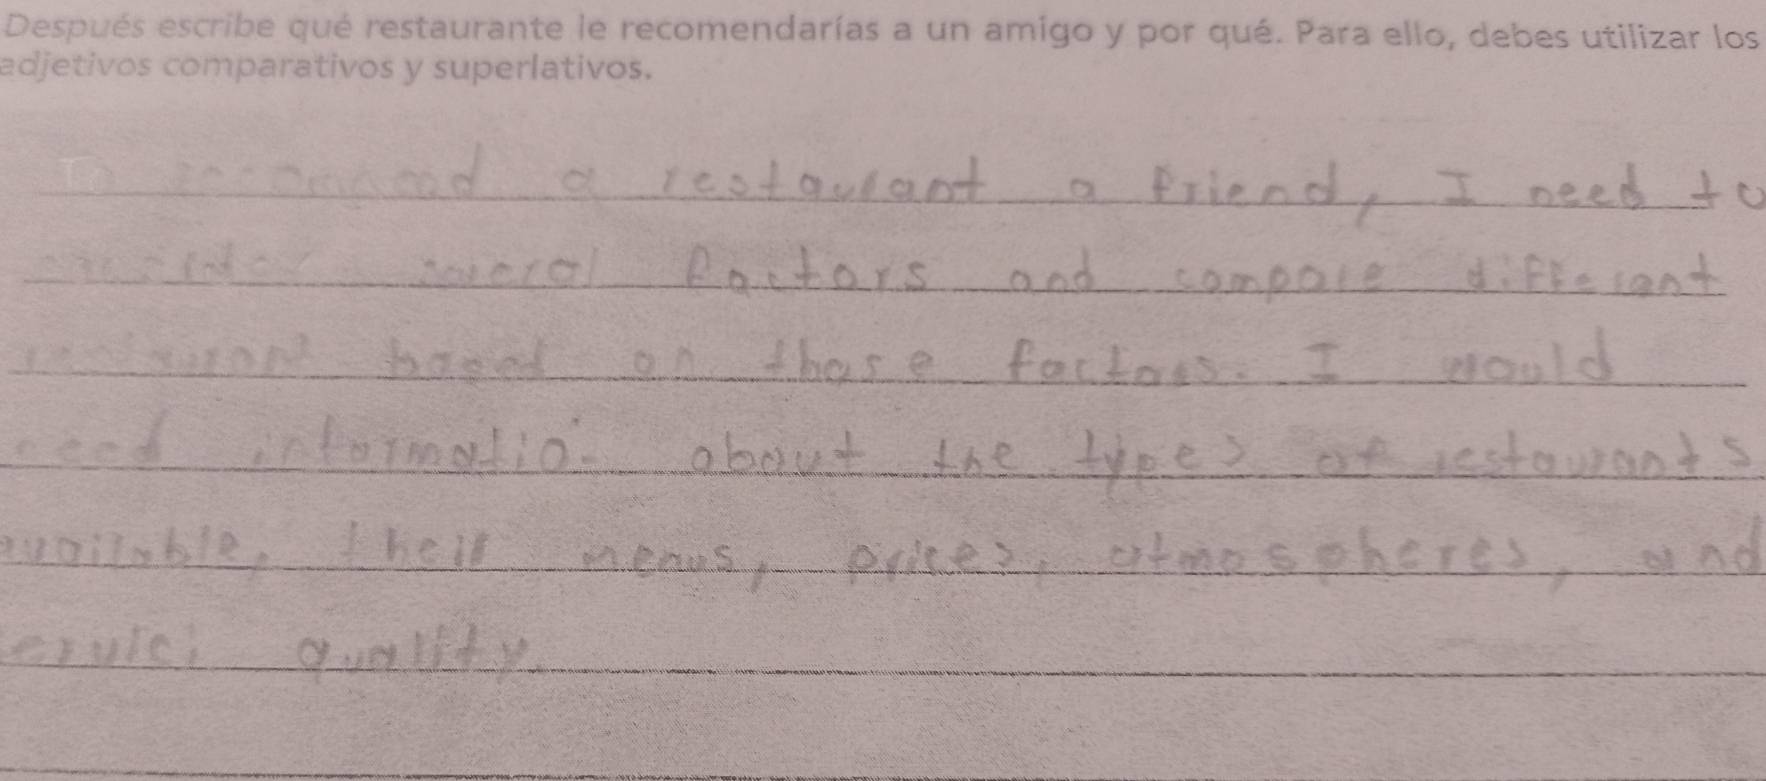 Después escribe qué restaurante le recomendarías a un amigo y por qué. Para ello, debes utilizar los
adjetivos comparativos y superlativos.
To a restaurant a friend, I need to
several factors and compare different
based on those factors. I would
need informatio about the types of restaurants
available, their menus, prices, atmospheres, and
quality